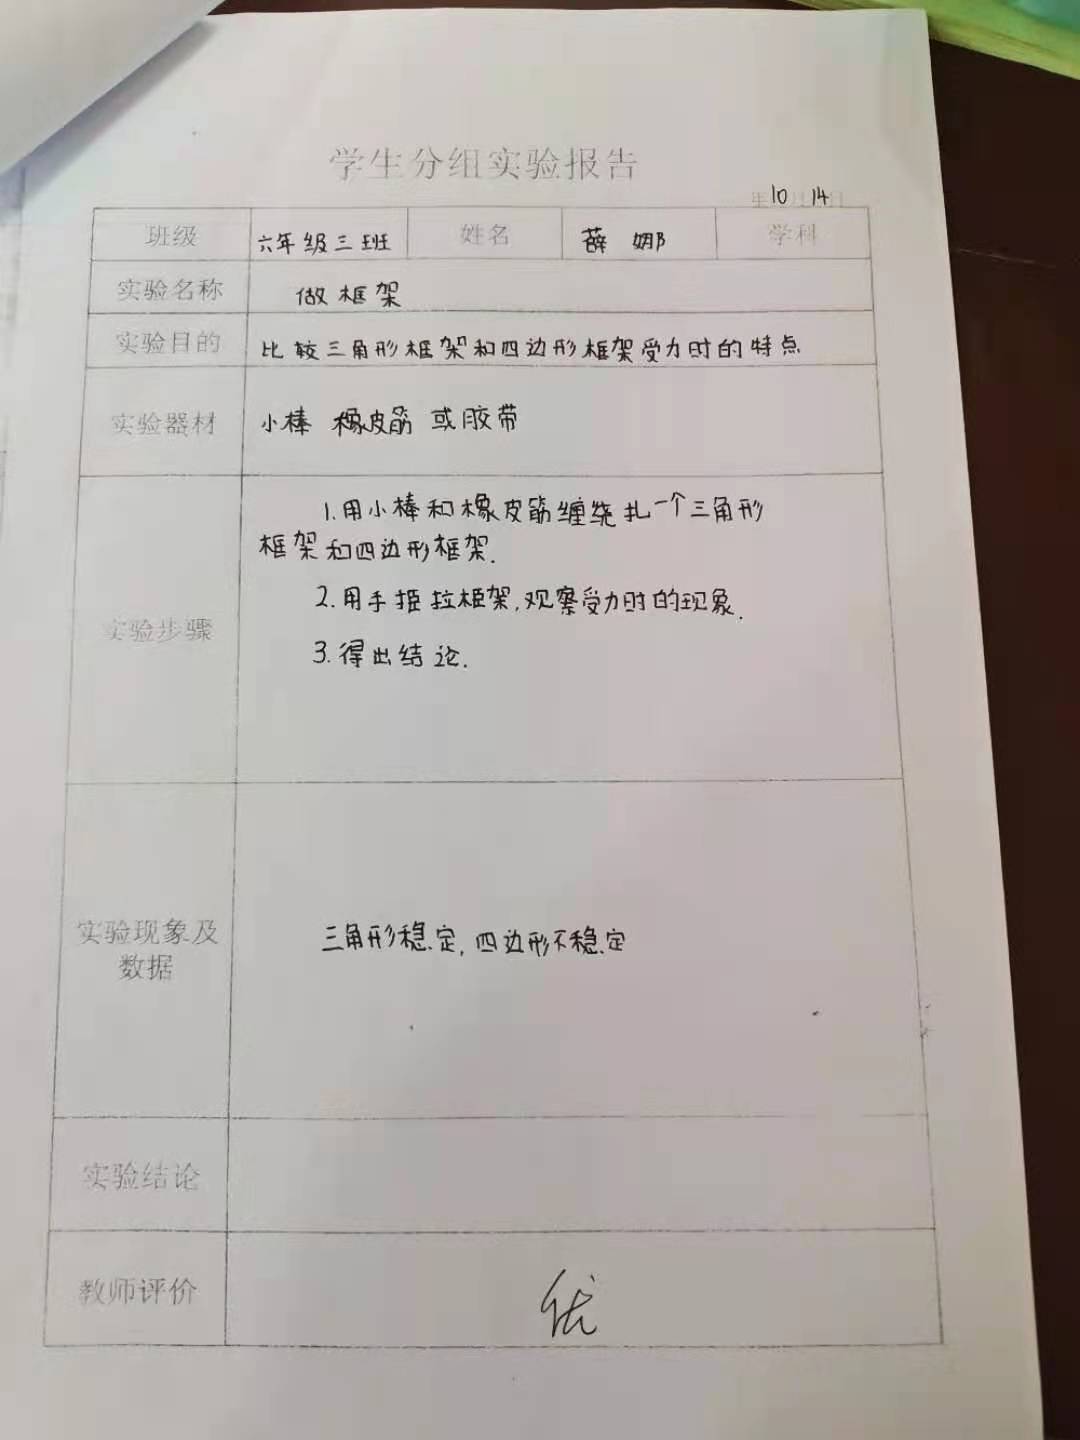 学生分组实验报告
年10月14日
班级 六年级三班 姓名 薛娜 学科
实验名称 做框架
实验目的 比较三角形框架和四边形框架受力时的特点
实验器材 小棒 橡皮筋 或胶带
实验步骤
1.用小棒和橡皮筋缠绕扎一个三角形
框架和四边形框架.
2.用手拉框架,观察受力时的现象.
3.得出结论.
实验现象及
数据
三角形稳定,四边形不稳定
实验结论
教师评价 优